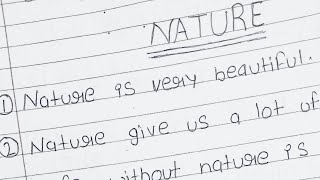 NATURE
① Nature is very beautiful.
② Nature give us a lot of
without nature is